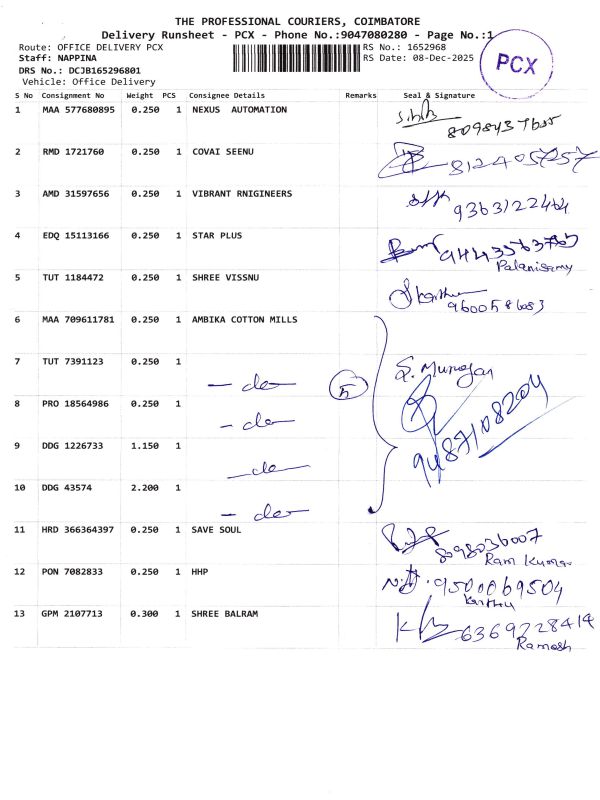 THE PROFESSIONAL COURIERS, COIMBATORE
Delivery Runsheet - PCX - Phone No.:9047080280 - Page No.:1
Route: OFFICE DELIVERY PCX
RS No.: 1652968
Staff: NAPPINA
RS Date: 08-Dec-2025
DRS No.: DCJB165296801
Vehicle: Office Delivery
PCX
S No Consignment No Weight PCS Consignee Details Remarks Seal & Signature
1 MAA 577680895 0.250 1 NEXUS AUTOMATION
2 RMD 1721760 0.250 1 COVAI SEENU
812405757
3 AMD 31597656 0.250 1 VIBRANT RNIGINEERS
9363122464
4 EDQ 15113166 0.250 1 STAR PLUS
Palanisamy
5 TUT 1184472 0.250 1 SHREE VISSNU
6 MAA 709611781 0.250 1 AMBIKA COTTON MILLS
7 TUT 7391123 0.250 1 - do - 5 S. Murugan
8 PRO 18564986 0.250 1 - do -
9487108204
9 DDG 1226733 1.150 1 - do -
10 DDG 43574 2.200 1 - do -
11 HRD 366364397 0.250 1 SAVE SOUL
8098036007
Ram Kumar
12 PON 7082833 0.250 1 HHP
9500069504
Karthi
13 GPM 2107713 0.300 1 SHREE BALRAM
6369228414
Ramesh